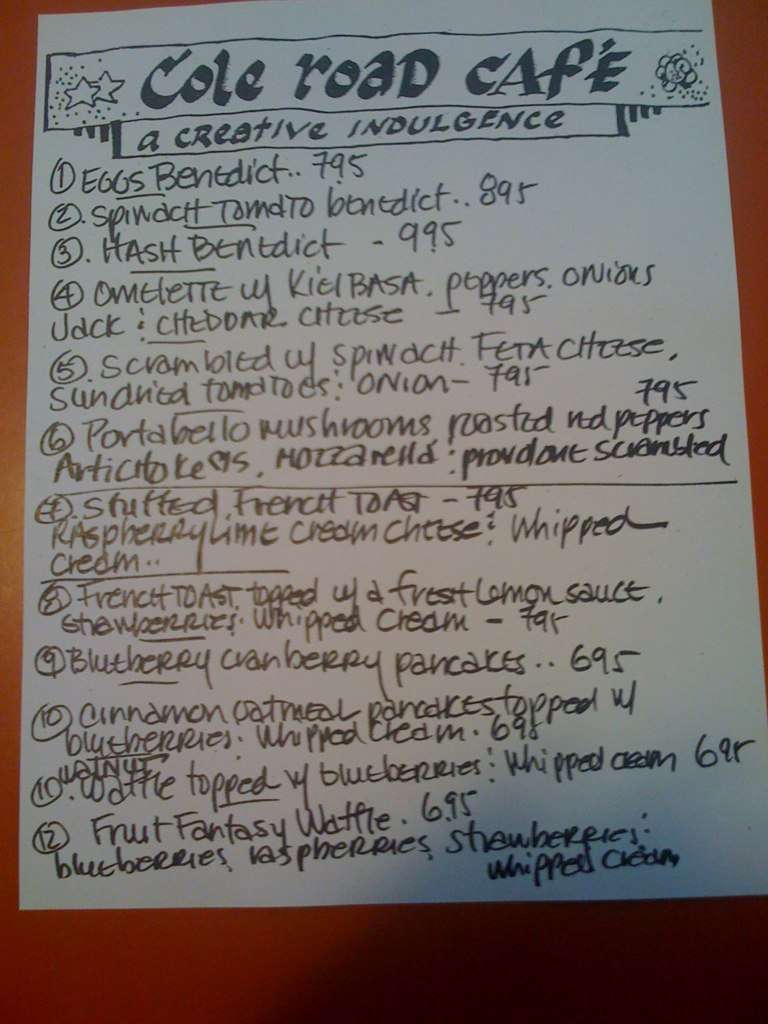 Cole road CAFÉ
a CREATIVE INDULGENCE
① EGGS Benedict.. 795
②. Spinach Tomato benedict.. 895
③. HASH Benedict - 995
④ Omelette w/ KielBASA. peppers. onions
Jack : CHEDDAR CHEESE - 795
⑤. Scrambled w/ spinach. FETA CHEESE,
sundried tomatoes: onion - 795
795
⑥ Portabello mushrooms roasted red peppers
Artichoke ♡s, mozzarella : provolone scrambled
⑦. Stuffed French TOAST - 795
RASpberry lime cream cheese : Whipped
cream..
⑧ French TOAST topped w/ a fresh lemon sauce,
strawberries. Whipped Cream - 795
⑨ Blueberry cranberry pancakes.. 695
⑩ Cinnamon oatmeal pancakes topped w/
blueberries. whipped cream. 695
walnut
⑩. Waffle topped w/ blueberries : Whipped cream 695
⑫ Fruit Fantasy Waffle. 695
blueberries, raspberries, strawberries:
whipped cream